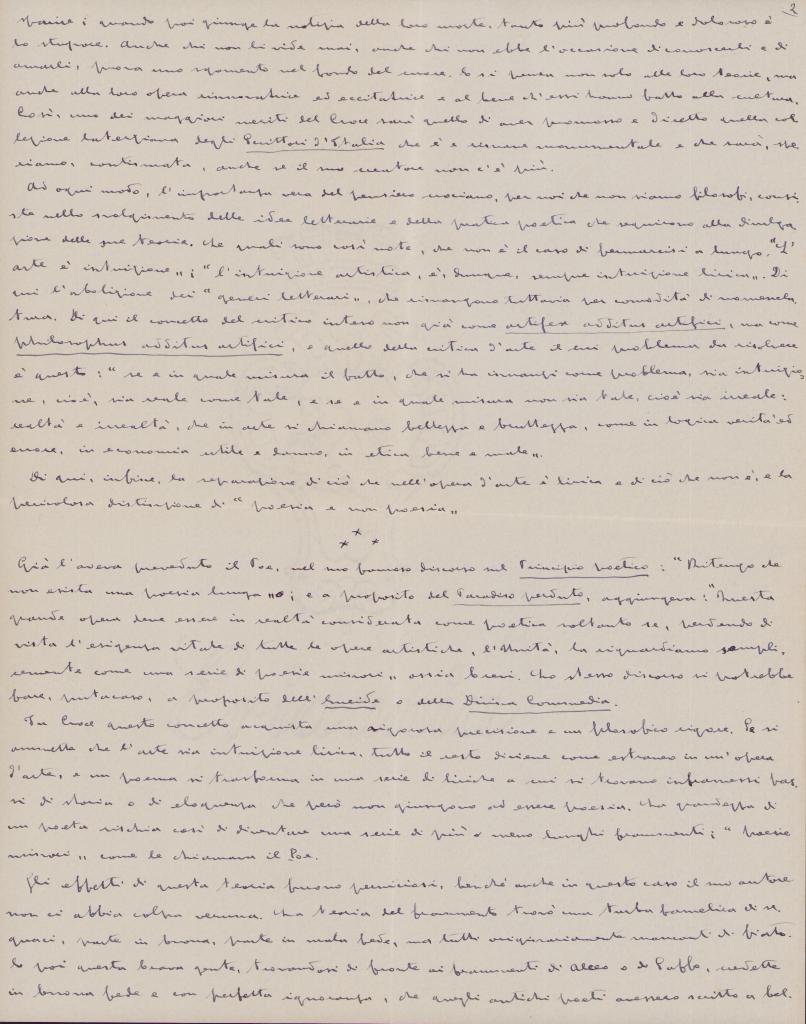 2
sparire; quando poi giunge la notizia della loro morte, tanto più profondo e doloroso è
lo stupore. Anche chi non li vide mai, anche chi non ebbe l'occasione di conoscerli e di
amarli, prova uno sgomento nel fondo del cuore. E si pensa non solo alle loro teorie, ma
anche alla loro opera rinnovatrice ed eccitatrice e al bene ch'essi hanno fatto alla cultura.
Così, uno dei maggiori meriti del Croce sarà quello di aver promosso e diretto quella col
lezione laterziana degli Scrittori d'Italia che è e rimane monumentale e che sarà, spe
riamo, continuata, anche se il suo creatore non c'è più.
Ad ogni modo, l'importanza vera del pensiero crociano, per noi che non siamo filosofi, consi-
ste nello svolgimento delle idee letterarie e della pratica poetica che seguirono alla divulga
zione delle sue teorie. Le quali sono così note, che non è il caso di fermarcisi a lungo. "L'
arte è intuizione„; "l'intuizione artistica, è, dunque, sempre intuizione lirica„. Di
qui l'abolizione dei "generi letterari„, che rimangono tuttavia per comodità di nomencla
tura. Di qui il concetto del critico inteso non già come artifex additus artifici, ma come
philosophus additus artifici, e quello della critica d'arte il cui problema da risolvere
è questo: "se e in quale misura il fatto, che si ha innanzi come problema, sia intuizio,
ne, cioè, sia reale come tale, e se e in quale misura non sia tale, cioè sia irreale:
realtà e irrealtà, che in arte si chiamano bellezza e bruttezza, come in logica verità ed
errore, in economia utile e danno, in etica bene e male„.
Di qui, infine, la separazione di ciò che nell'opera d'arte è lirica e di ciò che non è, e la
pericolosa distinzione di "poesia e non poesia„
* * *
Già l'aveva preveduto il Poe, nel suo famoso discorso sul Principio poetico: "Ritengo che
non esista una poesia lunga„; e a proposito del Paradiso perduto, aggiungeva: "Questa
grande opera deve essere in realtà considerata come poetica soltanto se, perdendo di
vista l'esigenza vitale di tutte le opere artistiche, l'Unità, la riguardiamo sempli,
cemente come una serie di poesie minori„ ossia brevi. Lo stesso discorso si potrebbe
fare, putacaso, a proposito dell'Eneide o della Divina Commedia.
In Croce questo concetto acquista una rigorosa precisione e un filosofico rigore. Se si
ammette che l'arte sia intuizione lirica, tutto il resto diviene come estraneo in un'opera
d'arte, e un poema si trasforma in una serie di liriche a cui si trovano inframessi pas,
si di storia o di eloquenza che però non giungono ad essere poesia. La grandezza di
un poeta rischia così di diventare una serie di più o meno lunghi frammenti; "poesie
minori„ come le chiamava il Poe.
Gli effetti di questa teoria furono perniciosi, benchè anche in questo caso il suo autore
non ci abbia colpa veruna. La teoria del frammento trovò una turba famelica di se,
guaci, parte in buona, parte in mala fede, ma tutti originariamente mancanti di fiato.
E poi questa brava gente, trovandosi di fronte ai frammenti di Alceo o di Saffo, credette
in buona fede e con perfetta ignoranza, che quegli antichi poeti avessero scritto a bel.